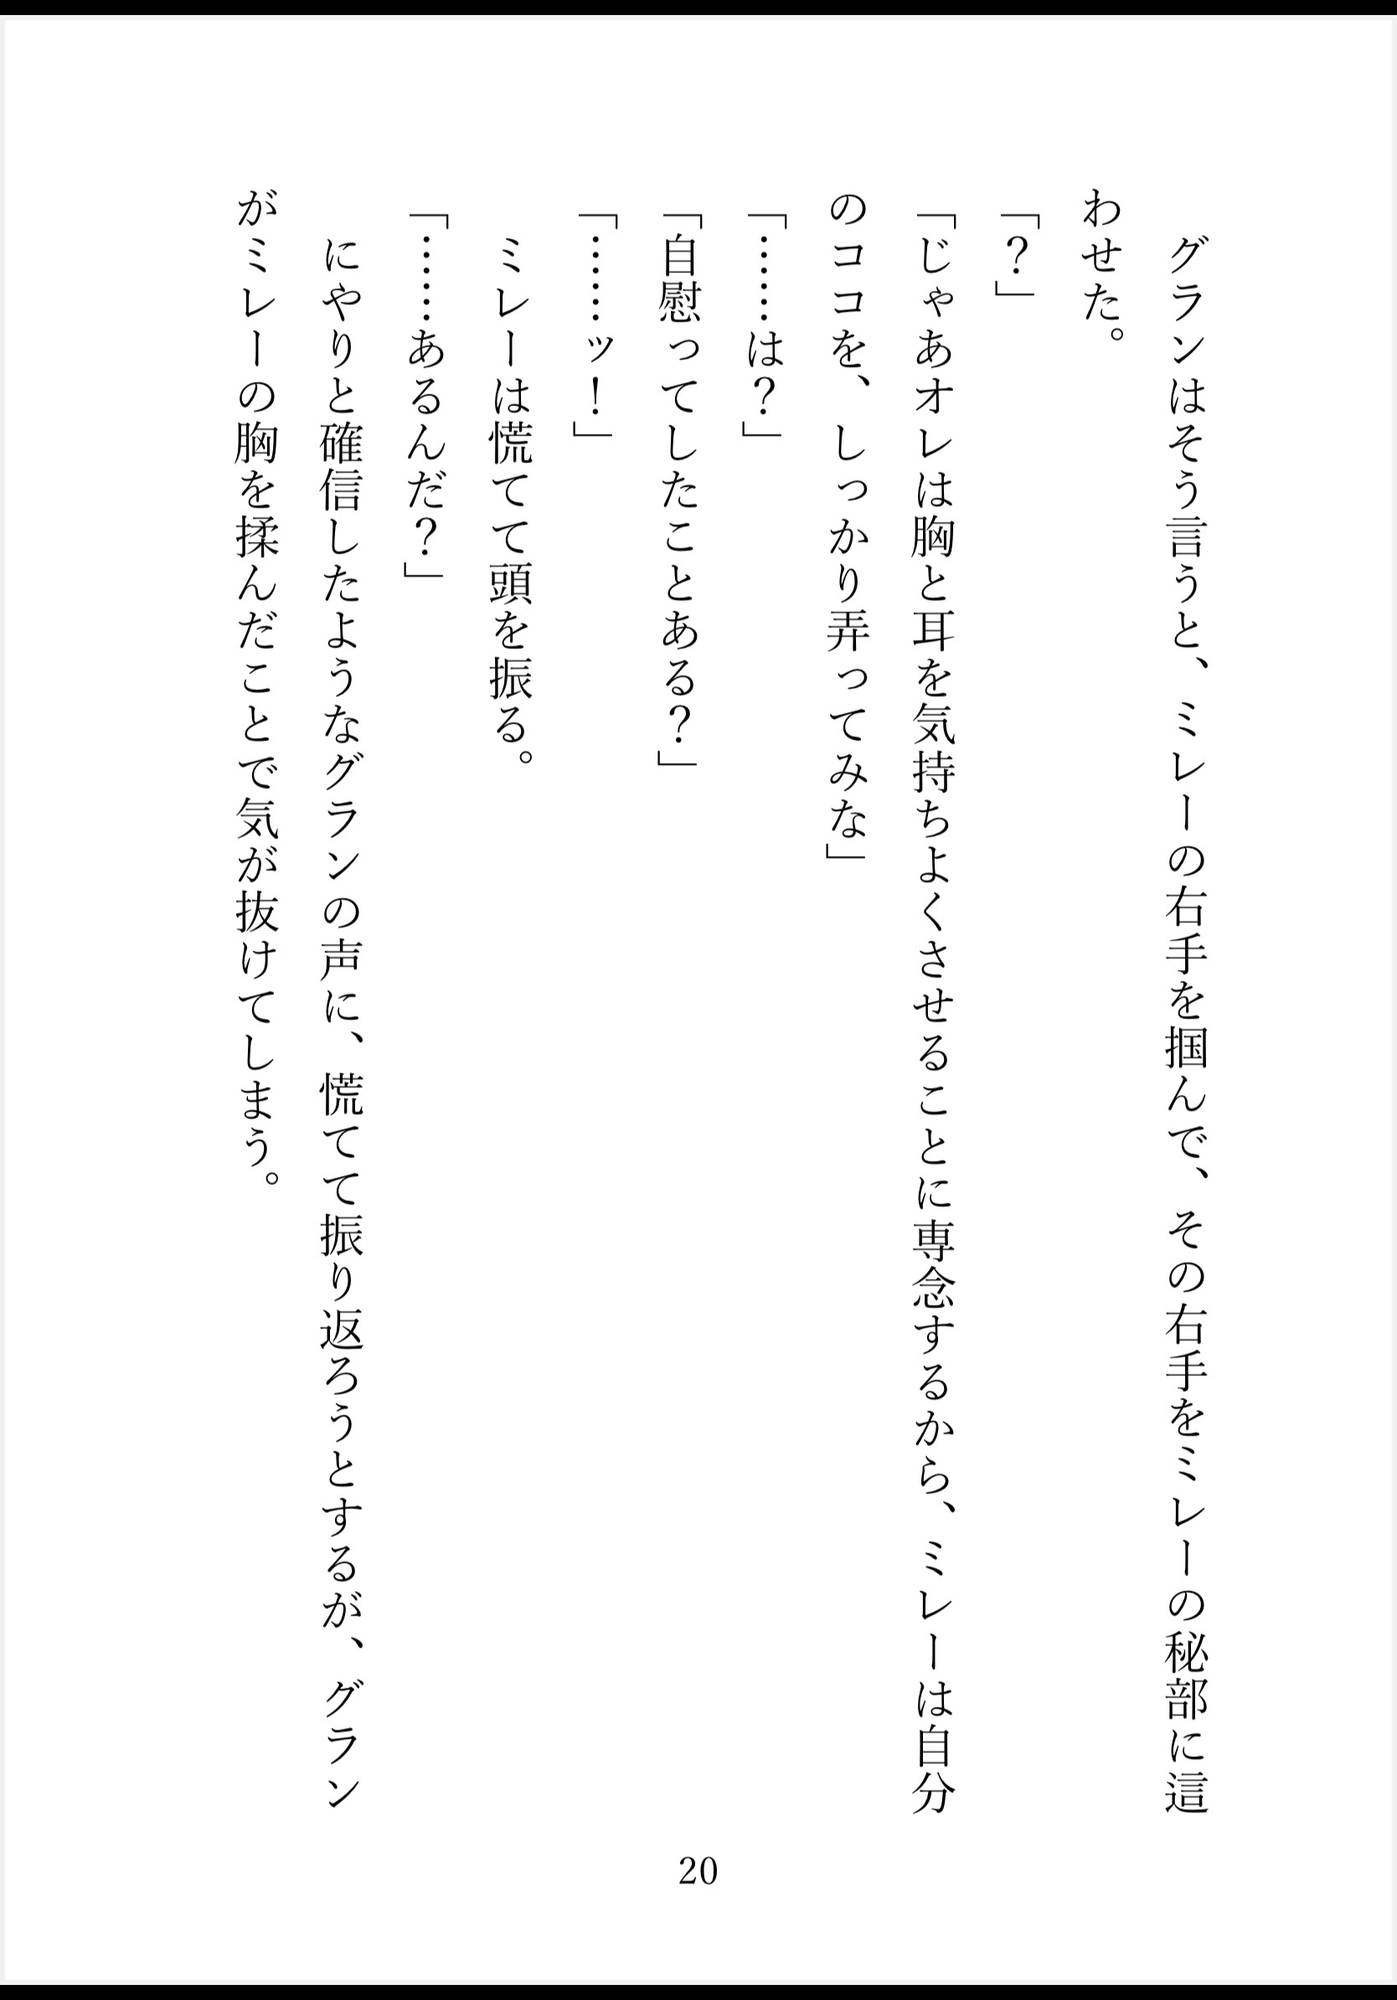 グランはそう言うと、ミレーの右手を掴んで、その右手をミレーの秘部に這
わせた。
「？」
「じゃあオレは胸と耳を気持ちよくさせることに専念するから、ミレーは自分
のココを、しっかり弄ってみな」
「……は？」
「自慰ってしたことある？」
「……ッ！」
ミレーは慌てて頭を振る。
「……あるんだ？」
にやりと確信したようなグランの声に、慌てて振り返ろうとするが、グラン
がミレーの胸を揉んだことで気が抜けてしまう。
20